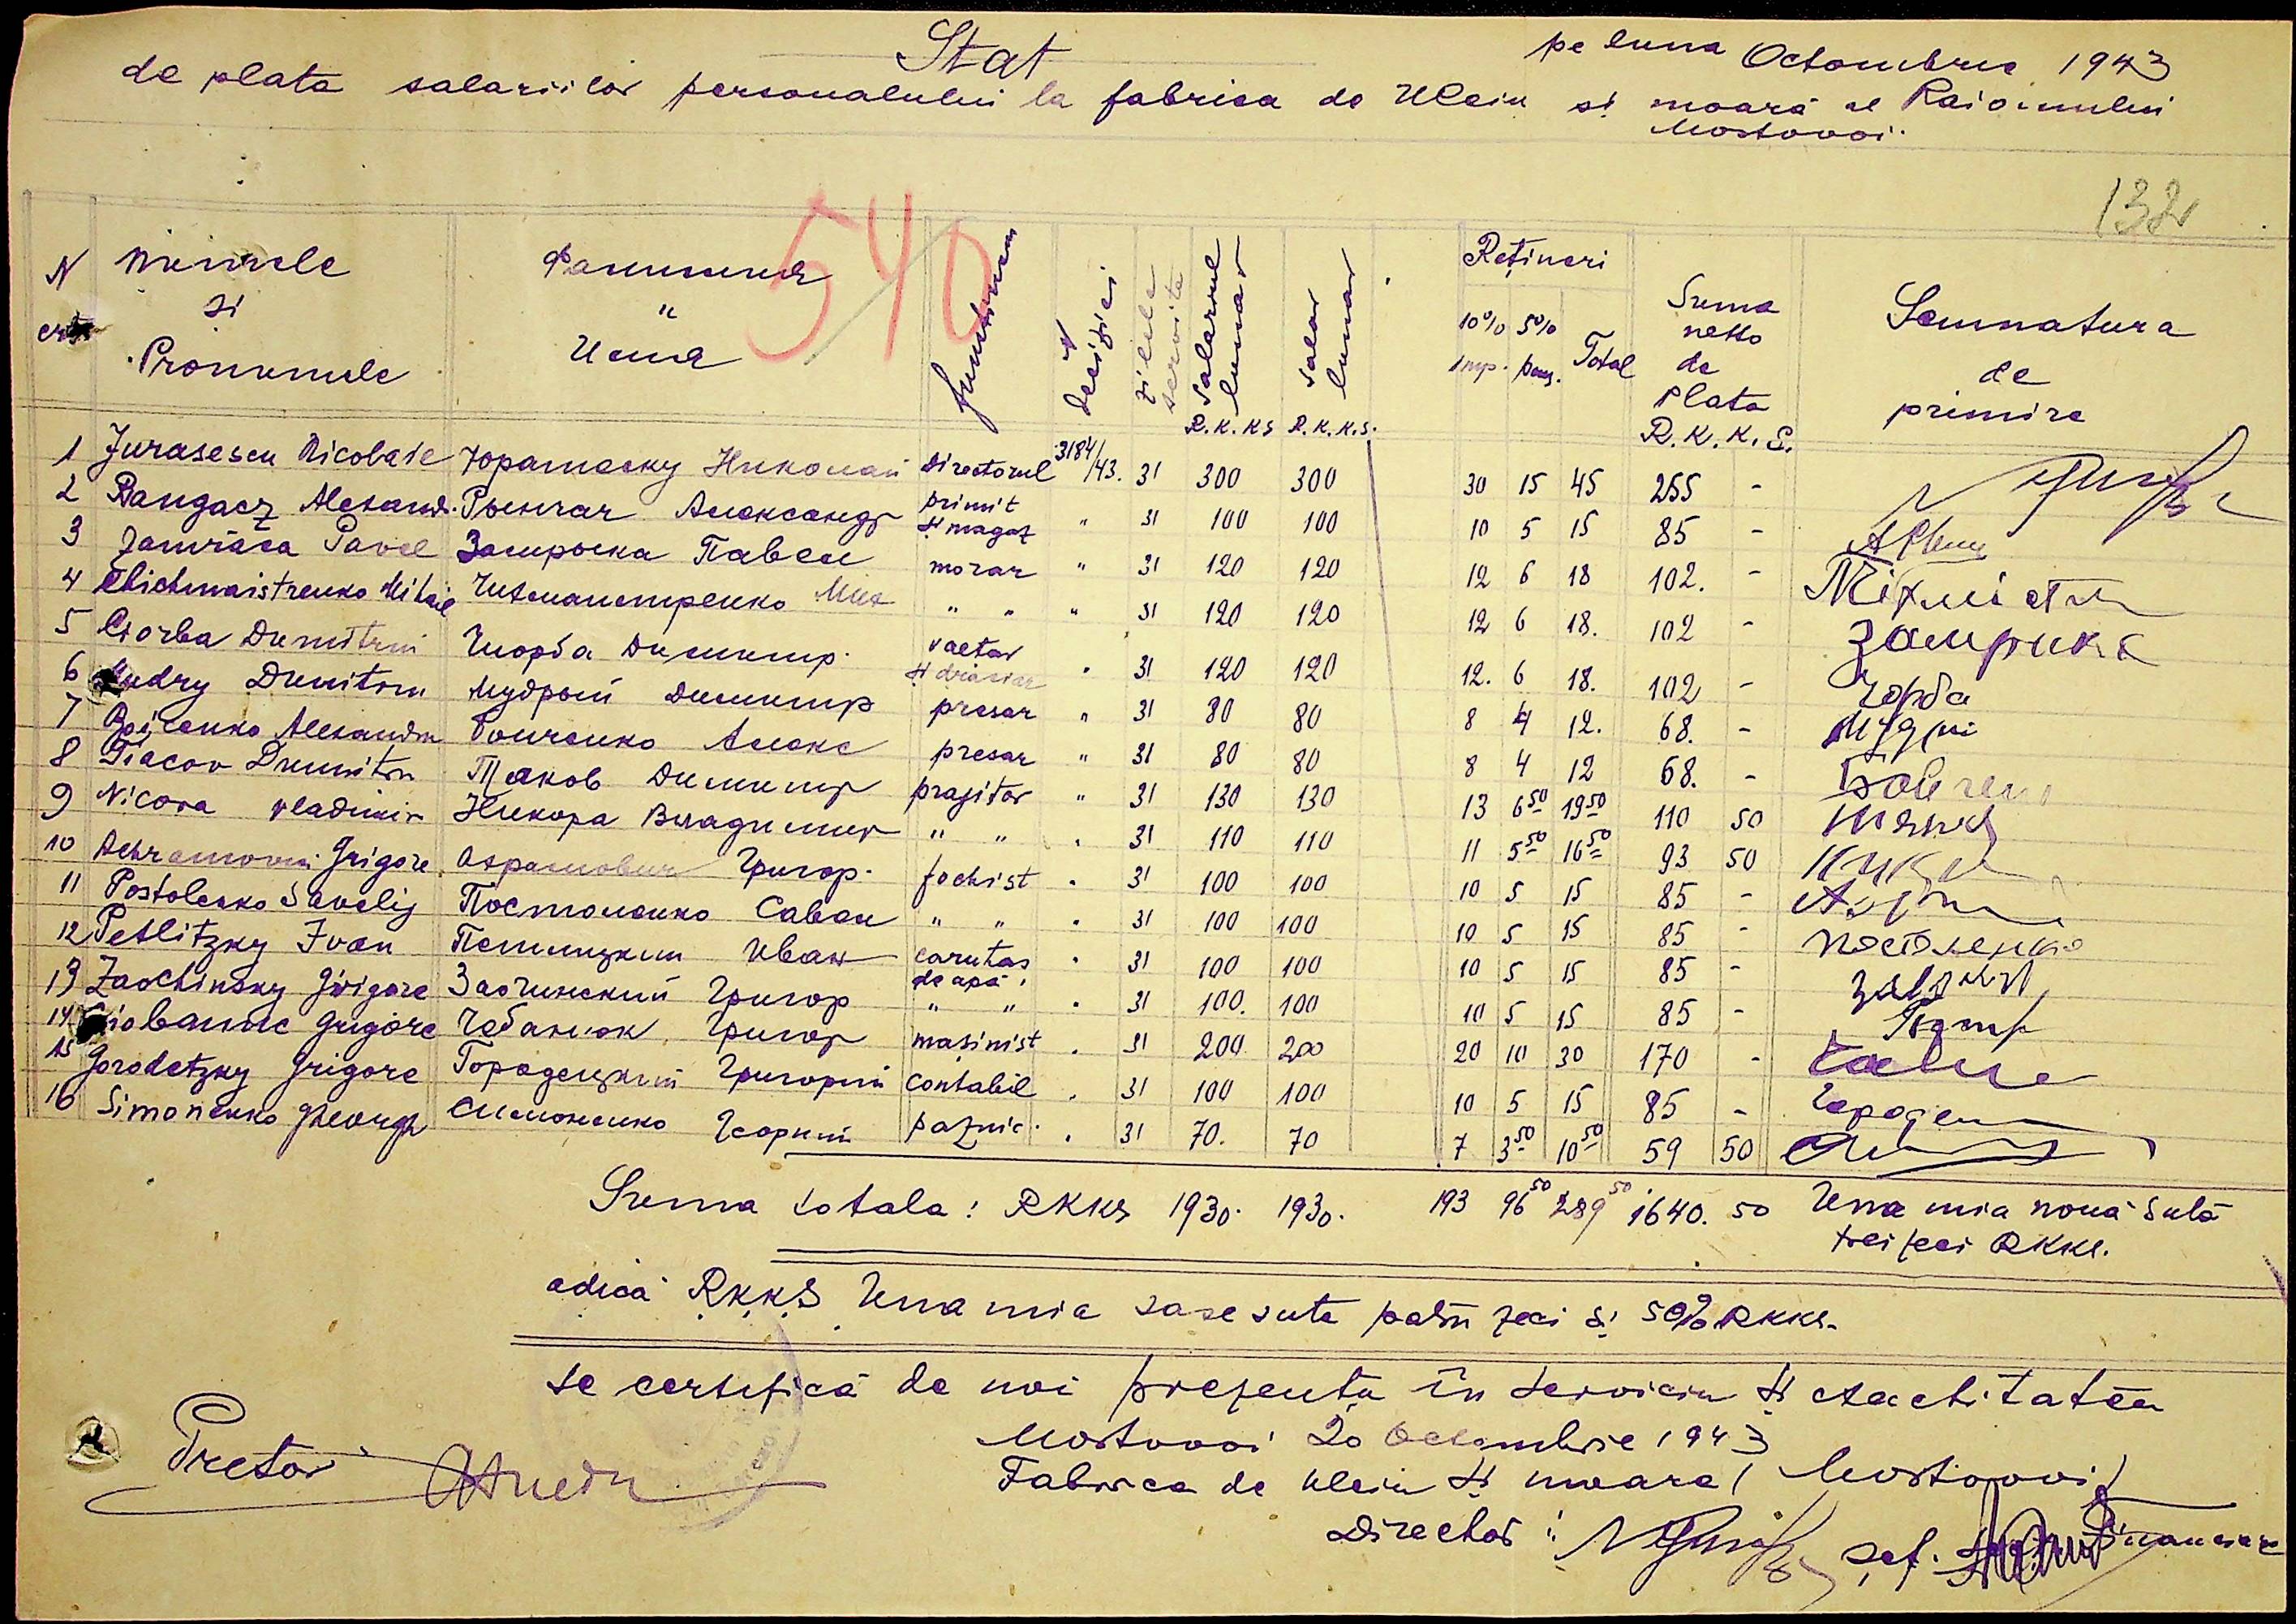 Stat
pe luna Octombrie 1943
de plata salariilor personalului la fabrica de Uleiu și moară al Raionului
Mostovoi
540
132
N crt
Numele și Pronumele
Фамилия и Имя
funcțiunea
N deciziei
zilele servite
Salariul lunar R.K.K.S
Salar lunar R.K.K.S.
Rețineri
10% imp. 5% pens. Total
Suma netto de plata R.K.K.S.
Semnatura de primire
1 Jurasescu Nicolaie Юрашеску Николай directorul 3184/43. 31 300 300 30 15 45 255 -
2 Rangacz Alexand. Рынгач Александр primit și magaz " 31 100 100 10 5 15 85 -
3 Zamrăca Pavel Замрыка Павел morar " 31 120 120 12 6 18 102. - Міхміст
4 Chichmaistrenko Mihail Чихмаистренко Мих " " " 31 120 120 12 6 18. 102 - Замрика
5 Ciorba Dumitru Чиорба Димитр. valtar și 31 120 120 12. 6 18. 102 - Чорба
6 Mudry Dumitru Мудрый Димитр presar " 31 80 80 8 4 12. 68. - Мудри
7 Boicenko Alexandru Боиченко Алекс presar " 31 80 80 8 4 12 68. -
8 Tiacov Dumitru Тяков Димитр prajitor " 31 130 130 13 6 50 19 50 110 50
9 Nicora Vladimir Никора Владимир " " . 31 110 110 11 5 50 16 50 93 50
10 Grigore Аврамович Григор. fochist . 31 100 100 10 5 15 85 -
11 Postolenko Savelij Постоленко Савел " " . 31 100 100 10 5 15 85 - постоленко
12 Petlitzky Ivan Петлицкий Иван carutas de apă . 31 100 100 10 5 15 85 -
13 Zaochinsky Grigore Заочинский Григор " " . 31 100. 100 10 5 15 85 -
14 Ciobaniuc Grigore Чабанюк Григор masinist . 31 200 200 20 10 30 170 -
15 Gorodetzky Grigore Городецкий Григорий contabil . 31 100 100 10 5 15 85 -
16 Simonenko Gheorgh Симоненко Георгий paznic. . 31 70. 70 7 3 50 10 50 59 50
Suma totala: RKKS 1930. 1930. 193 96 50 289 50 1640. 50 Una mia nouă sută
treizeci RKKS.
adică RKKS Una mia sase sute patru zeci și 50% RKKS.
se certifică de noi prezenta în serviciu și achitatea
Mostovoi 20 Octombrie 1943
Fabrica de uleiu și moara Mostovoi
Pretor
Director:
Șef. financiar